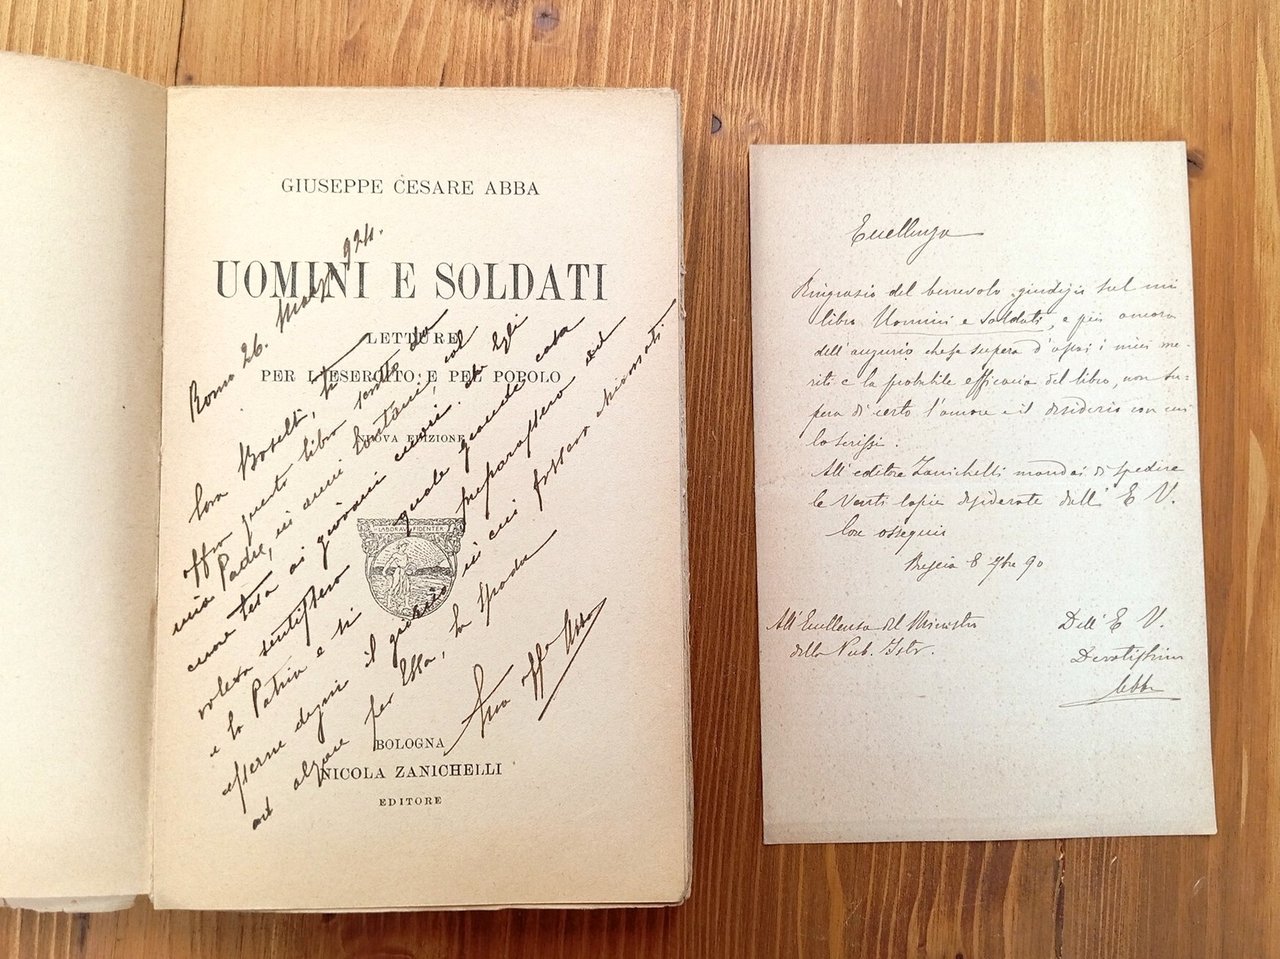 GIUSEPPE CESARE ABBA
UOMINI E SOLDATI
LETTURE
PER L'ESERCITO E PEL POPOLO
NUOVA EDIZIONE
LABORAVI FIDENTER
BOLOGNA
NICOLA ZANICHELLI
EDITORE
Roma 26. 924.
Cara Boselli, ti
offro questo libro scritto da
mio Padre, in anni lontani, col
cuore teso ai giovani cuori. Egli
voleva sentissero quale grande cosa
è la Patria e si preparassero ad
esserne degni il giorno in cui fossero chiamati
ad alzare per Essa, la spada
Tua aff. Abba
Eccellenza
Ringrazio del benevolo giudizio sul mio
libro Uomini e Soldati, e più ancora
dell'augurio che se supera d'assai i miei me-
riti e la probabile efficacia del libro, non su-
pera di certo l'amore e il desiderio con cui
lo scrissi.
All'editore Zanichelli mandai di spedire
le Venti copie desiderate dall' E V.
Con ossequio
Brescia 8 9bre 90
All'Eccellenza del Ministro
della Pub. Istr.
Dell' E V.
Devotissimo
Abba